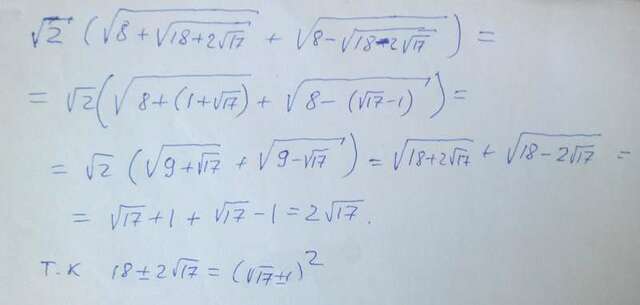 √2 (√(8+√(18+2√17)) + √(8-√(18-2√17))) =
= √2(√(8+(1+√17)) + √(8-(√17-1))) =
= √2 (√(9+√17) + √(9-√17)) = √(18+2√17) + √(18-2√17) =
= √17+1 + √17-1 = 2√17.
т.к 18±2√17 = (√17±1)²